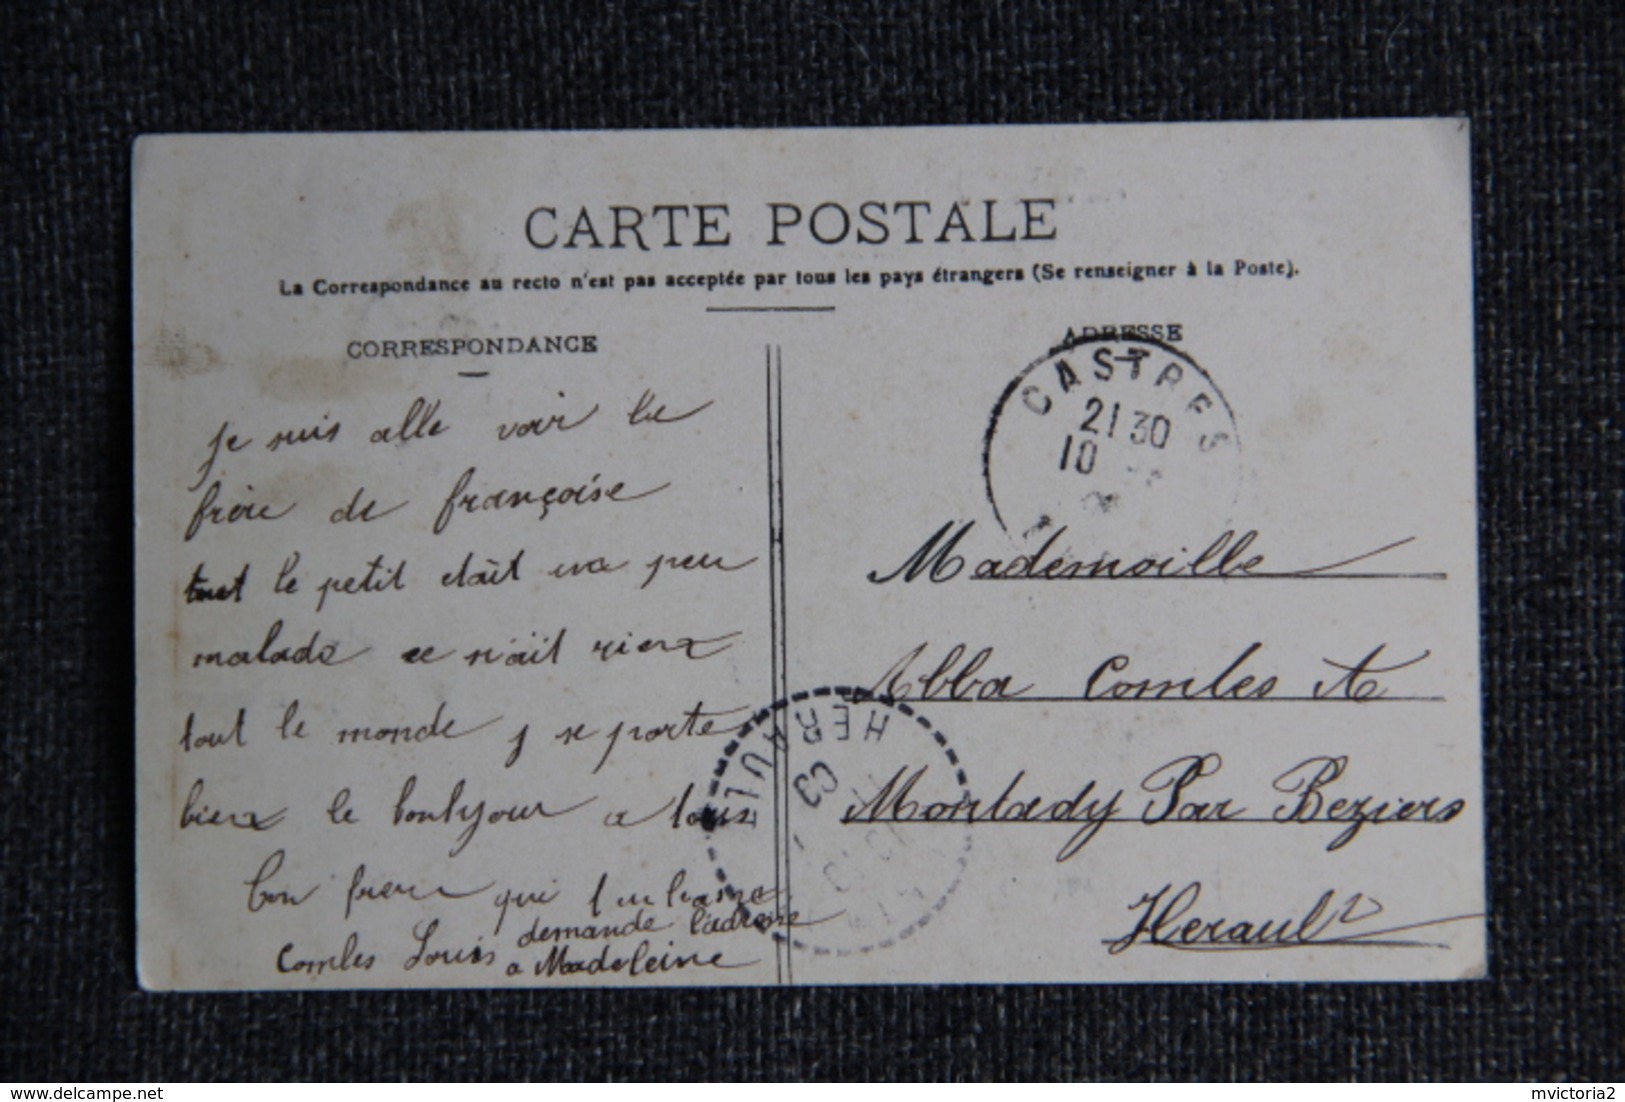 CARTE POSTALE
La Correspondance au recto n'est pas acceptée par tous les pays étrangers (Se renseigner à la Poste).
CORRESPONDANCE
je suis alle voir le
frère de françoise
tout le petit etait un peu
malade ce n'ait rien
tout le monde se porte
bien le bonhjour a tous
ton frere qui t'embrasse
Comles Louis
demande l'adresse
a Madeleine
ADRESSE
CASTRES
21 30
10
Mademoille
Abba Comles A
Montady Par Beziers
Herault
HERAULT
delcampe.net
mvictoria2